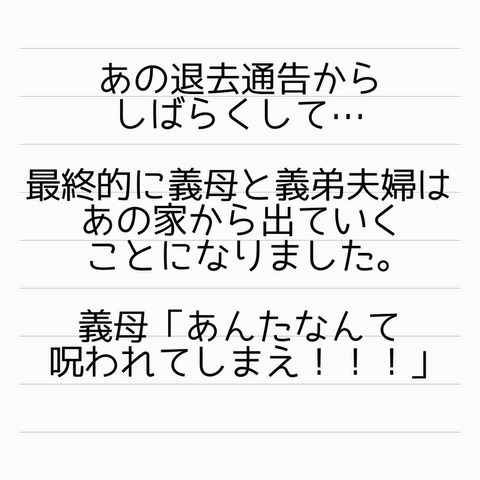 あの退去通告から
しばらくして…
最終的に義母と義弟夫婦は
あの家から出ていく
ことになりました。
義母「あんたなんて
呪われてしまえ！！！」